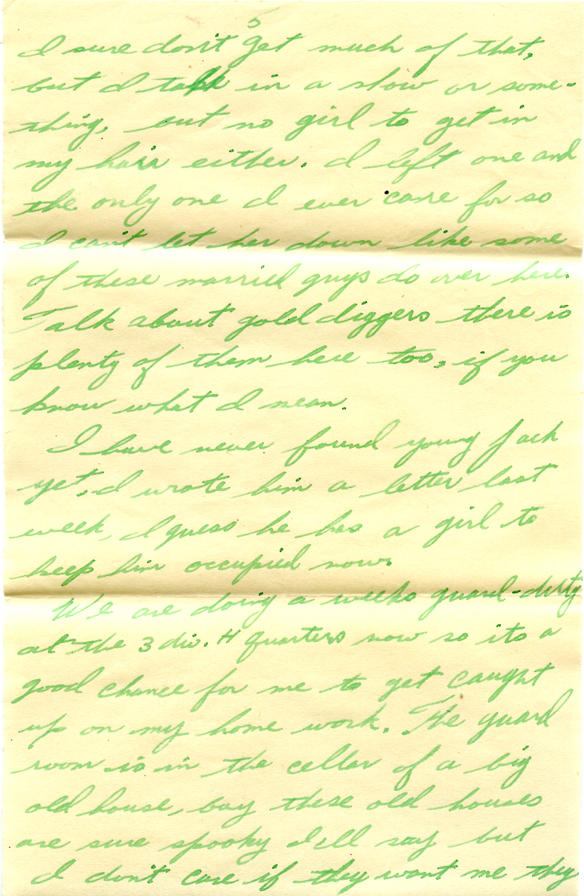 5
I sure don't get much of that,
but I take in a show or some-
thing, but no girl to get in
my hair either. I left one and
the only one I ever care for so
I can't let her down like some
of these married guys do over here.
Talk about gold diggers there is
plenty of them here too, if you
know what I mean.
I have never found young Jack
yet, I wrote him a letter last
week, I guess he has a girl to
keep him occupied now.
We are doing a weeks guard-duty
at the 3 div. H quarters now so its a
good chance for me to get caught
up on my home work. The guard
room is in the cellar of a big
old house, boy these old houses
are sure spooky I'll say but
I don't care if they want me they